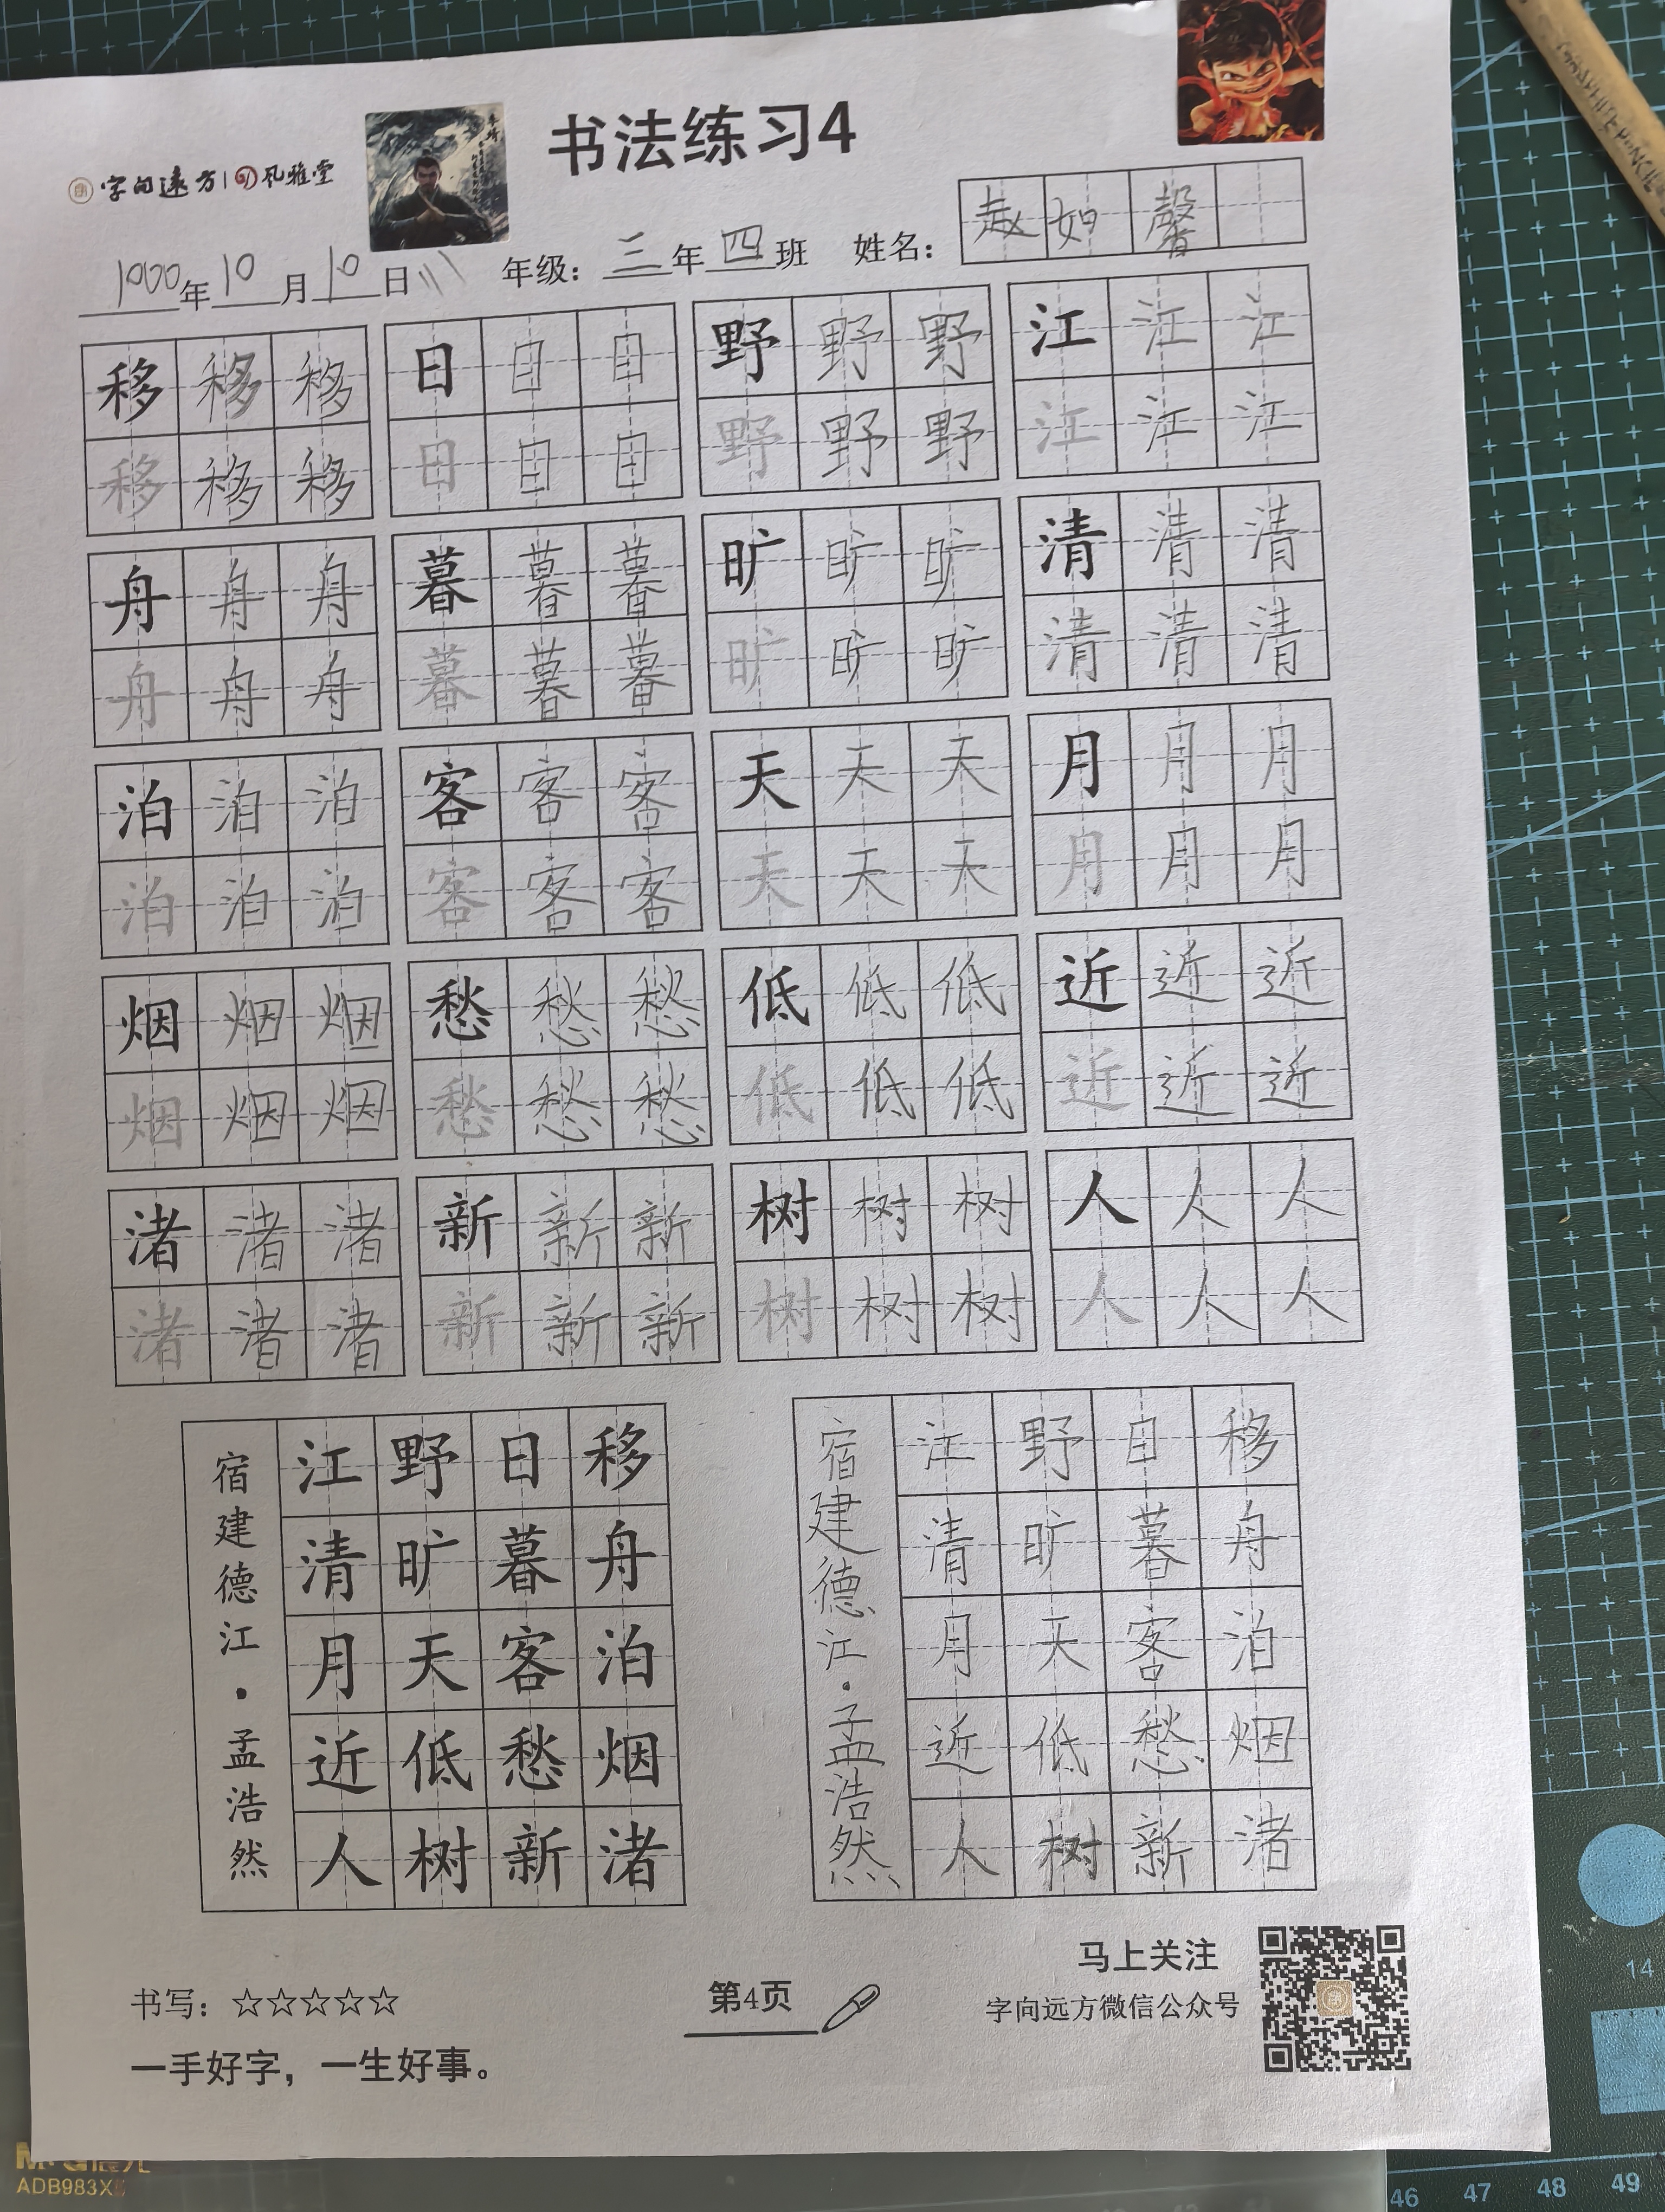 书法练习4
字向远方|风雅堂
李靖
1000年10月10日 年级：三年四班 姓名：赵如馨
移移移 日日日 野野野 江江江
移移移 日日日 野野野 江江江
舟舟舟 暮暮暮 旷旷旷 清清清
舟舟舟 暮暮暮 旷旷旷 清清清
泊泊泊 客客客 天天天 月月月
泊泊泊 客客客 天天天 月月月
烟烟烟 愁愁愁 低低低 近近近
烟烟烟 愁愁愁 低低低 近近近
渚渚渚 新新新 树树树 人人人
渚渚渚 新新新 树树树 人人人
移舟泊烟渚
日暮客愁新
野旷天低树
江清月近人
宿建德江·孟浩然
移舟泊烟渚
日暮客愁新
野旷天低树
江清月近人
宿建德江·孟浩然
书写：☆☆☆☆☆
一手好字，一生好事。
第4页
马上关注
字向远方微信公众号
14
46 47 48 49
ADB983X